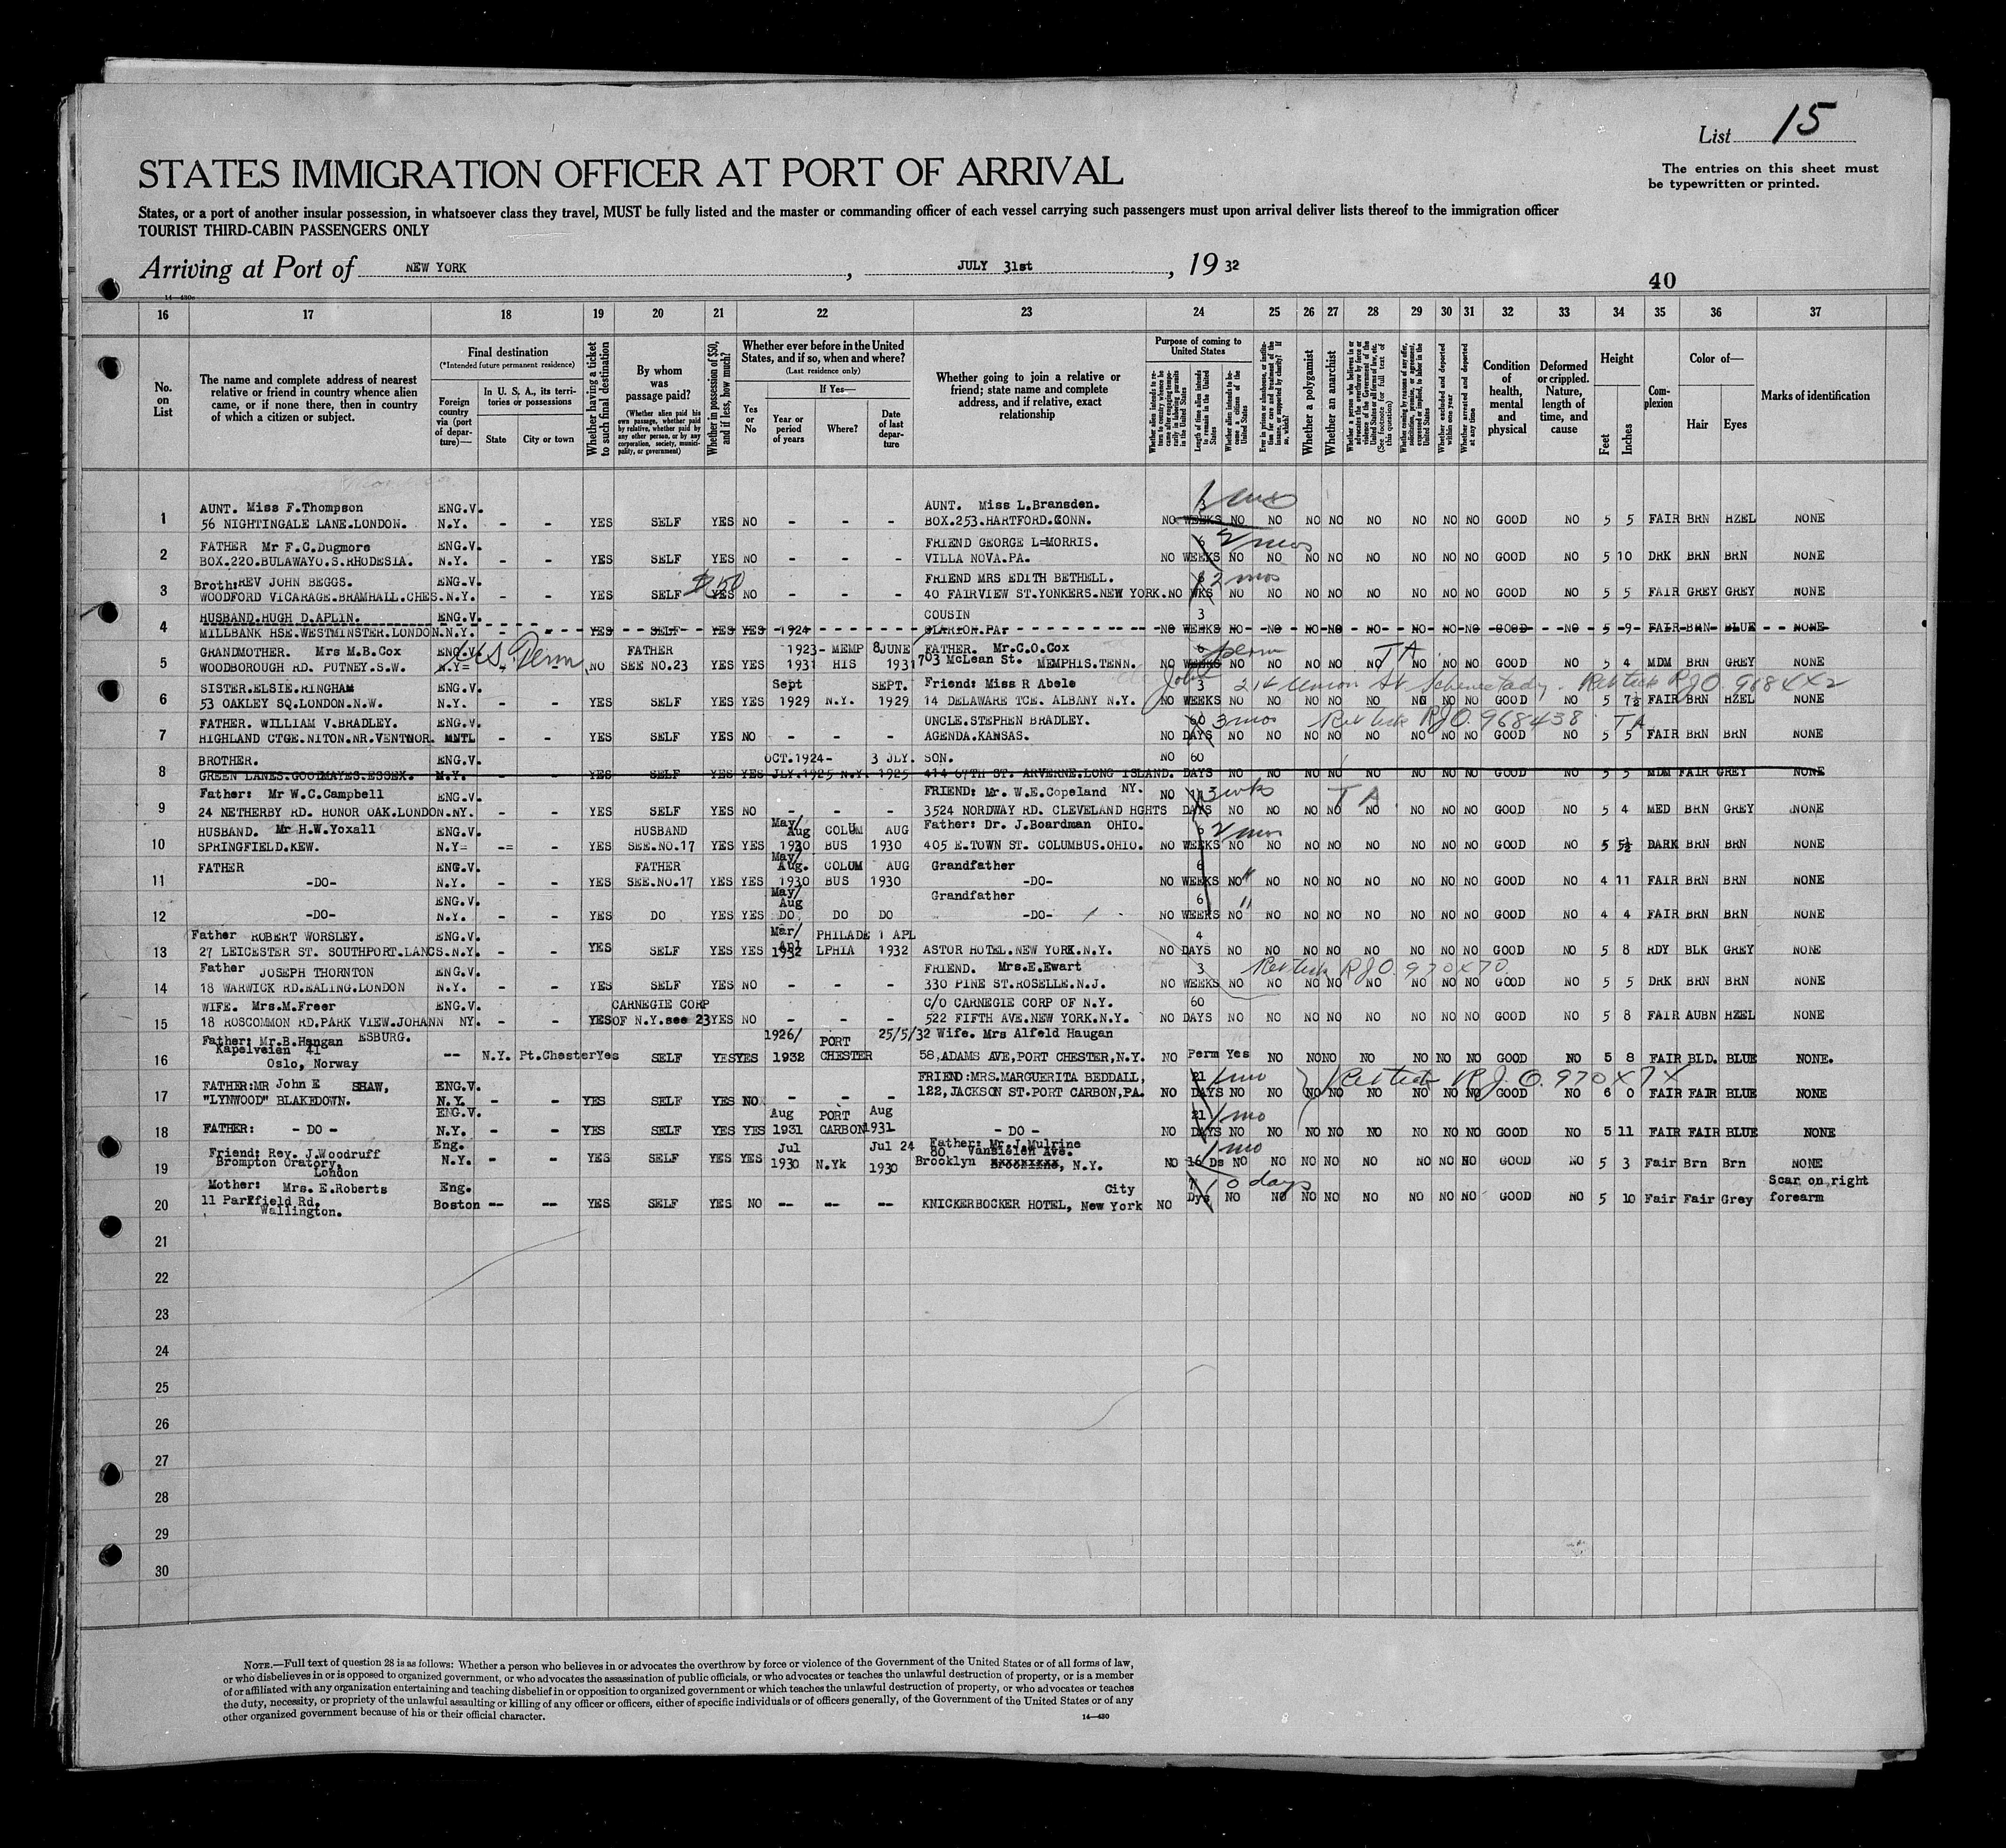 List 15
The entries on this sheet must
be typewritten or printed.
STATES IMMIGRATION OFFICER AT PORT OF ARRIVAL
States, or a port of another insular possession, in whatsoever class they travel, MUST be fully listed and the master or commanding officer of each vessel carrying such passengers must upon arrival deliver lists thereof to the immigration officer
TOURIST THIRD-CABIN PASSENGERS ONLY
Arriving at Port of NEW YORK, JULY 31st, 19 32
40
16 17 18 19 20 21 22 23 24 25 26 27 28 29 30 31 32 33 34 35 36 37
No. on List
The name and complete address of nearest
relative or friend in country whence alien
came, or if none there, then in country
of which a citizen or subject.
Final destination
(*Intended future permanent residence)
Foreign country via (port of departure)—
In U. S. A., its territories or possessions
State
City or town
Whether having a ticket to such final destination
By whom was passage paid?
(Whether alien paid his own passage, whether paid by relative, whether paid by any other person, or by any corporation, society, municipality, or government)
Whether in possession of $50, and if less, how much?
Whether ever before in the United
States, and if so, when and where?
(Last residence only)
Yes or No
If Yes—
Year or period of years
Where?
Date of last departure
Whether going to join a relative or
friend; state name and complete
address, and if relative, exact
relationship
Purpose of coming to United States
Whether alien intends to return to country whence he came after engaging temporarily in laboring pursuits in the United States
Length of time alien intends to remain in the United States
Whether alien intends to become a citizen of the United States
Ever in prison or almshouse, or institution for care and treatment of the insane, or supported by charity? If so, which?
Whether a polygamist
Whether an anarchist
Whether a person who believes in or advocates the overthrow by force or violence of the Government of the United States or all forms of law, etc. (See footnote for full text of this question)
Whether coming by reason of any offer, solicitation, promise, or agreement, expressed or implied, to labor in the United States
Whether excluded and deported within one year
Whether arrested and deported at any time
Condition of health, mental and physical
Deformed or crippled. Nature, length of time, and cause
Height
Feet
Inches
Complexion
Color of—
Hair
Eyes
Marks of identification
AUNT. Miss F.Thompson ENG.V. AUNT. Miss L.Bransden. 3 1 mo
1 56 NIGHTINGALE LANE.LONDON. N.Y. - - YES SELF YES NO - - - BOX.253.HARTFORD.CONN. NO WEEKS NO NO NO NO NO NO NO NO GOOD NO 5 5 FAIR BRN HZEL NONE
FATHER Mr F.C.Dugmore ENG.V. FRIEND GEORGE L=MORRIS. 6 2 mos
2 BOX.220.BULAWAYO.S.RHODESIA. N.Y. - - YES SELF YES NO - - - VILLA NOVA.PA. NO WEEKS NO NO NO NO NO NO NO NO GOOD NO 5 10 DRK BRN BRN NONE
Broth:REV JOHN BEGGS. ENG.V. $50 FRIEND MRS EDITH BETHELL. 8 2 mos
3 WOODFORD VICARAGE.BRAMHALL.CHES.N.Y. - - YES SELF YES NO - - - 40 FAIRVIEW ST.YONKERS.NEW YORK. NO WKS NO NO NO NO NO NO NO NO GOOD NO 5 5 FAIR GREY GREY NONE
HUSBAND.HUGH D.APLIN. ENG.V. COUSIN 3
4 MILLBANK HSE.WESTMINSTER.LONDON.N.Y. - - YES SELF YES YES 1924 CLARION.PA. NO WEEKS NO NO NO NO NO NO NO NO GOOD NO 5 9 FAIR BRN BLUE NONE
GRANDMOTHER. Mrs M.B.Cox ENG.V. U.S. Perm FATHER 1923- MEMP 8JUNE FATHER. Mr.C.O.Cox 6 perm TA
5 WOODBOROUGH RD. PUTNEY.S.W. N.Y= - - NO SEE NO.23 YES YES 1931 HIS 1931 703 McLean St. MEMPHIS.TENN. NO WEEKS NO NO NO NO NO NO NO NO GOOD NO 5 4 MDM BRN GREY NONE
SISTER.ELSIE.RINGHAM ENG.V. Sept SEPT. Friend: Miss R Abele 3 Union St Schenectady. RJO 968442
6 53 OAKLEY SQ.LONDON.N.W. N.Y. - - YES SELF YES YES 1929 N.Y. 1929 14 DELAWARE TCE. ALBANY N.Y. NO WEEKS NO NO NO NO NO NO NO NO GOOD NO 5 7½ FAIR BRN HZEL NONE
FATHER. WILLIAM V.BRADLEY. ENG.V. UNCLE.STEPHEN BRADLEY. 60 3 mos RJO. 968438 TA
7 HIGHLAND CTGE.NITON.NR.VENTNOR. MNTL - - YES SELF YES NO - - - AGENDA.KANSAS. NO DAYS NO NO NO NO NO NO NO NO GOOD NO 5 5 FAIR BRN BRN NONE
BROTHER. ENG.V. OCT.1924- 3 JLY. SON. NO 60
8 GREEN LANES.GOODMAYES.ESSEX. N.Y. YES SELF YES YES JLY.1925 N.Y. 1925 414 67TH ST. ARVERNE.LONG ISLAND. DAYS NO NO NO NO NO NO NO NO GOOD NO 5 5 MDM FAIR GREY NONE
Father: Mr W.C.Campbell ENG.V. FRIEND: Mr. W.E.Copeland NY. NO 14 3 wks TA
9 24 NETHERBY RD. HONOR OAK.LONDON.NY. - - YES SELF YES NO - - - 3524 NORDWAY RD. CLEVELAND HGHTS DAYS NO NO NO NO NO NO NO NO GOOD NO 5 4 MED BRN GREY NONE
HUSBAND. Mr H.W.Yoxall ENG.V. HUSBAND May/ Aug COLUM AUG Father: Dr. J.Boardman OHIO. 6 2 mos
10 SPRINGFIELD.KEW. N.Y= -= - YES SEE.NO.17 YES YES 1930 BUS 1930 405 E.TOWN ST. COLUMBUS.OHIO. NO WEEKS NO NO NO NO NO NO NO NO GOOD NO 5 5½ DARK BRN BRN NONE
FATHER ENG.V. FATHER May/ Aug. COLUM AUG Grandfather 6
11 -DO- N.Y. - - YES SEE.NO.17 YES YES 1930 BUS 1930 -DO- NO WEEKS NO " NO NO NO NO NO NO NO GOOD NO 4 11 FAIR BRN BRN NONE
ENG.V. May/ Aug Grandfather 6 "
12 -DO- N.Y. - - YES DO YES YES DO DO DO -DO- NO WEEKS NO NO NO NO NO NO NO NO GOOD NO 4 4 FAIR BRN BRN NONE
Father ROBERT WORSLEY. ENG.V. Mar/ Apl PHILADE 1 APL 4
13 27 LEICESTER ST. SOUTHPORT.LANCS.N.Y. - - YES SELF YES YES 1932 LPHIA 1932 ASTOR HOTEL.NEW YORK.N.Y. NO DAYS NO NO NO NO NO NO NO NO GOOD NO 5 8 RDY BLK GREY NONE
Father JOSEPH THORNTON ENG.V. FRIEND. Mrs.E.Ewart 3 RJO. 970470
14 18 WARWICK RD.EALING.LONDON N.Y. - - YES SELF YES NO - - - 330 PINE ST.ROSELLE.N.J. NO WEEKS NO NO NO NO NO NO NO NO GOOD NO 5 5 DRK BRN BRN NONE
WIFE. Mrs.M.Freer ENG.V. CARNEGIE CORP C/O CARNEGIE CORP OF N.Y. 60
15 18 ROSCOMMON RD.PARK VIEW.JOHANN NY. - - YES OF N.Y.see 23 YES NO - - - 522 FIFTH AVE.NEW YORK.N.Y. NO DAYS NO NO NO NO NO NO NO NO GOOD NO 5 8 FAIR AUBN HZEL NONE
ESBURG.
Father: Mr.B.Hangan 1926/ PORT 25/5/32 Wife. Mrs Alfeld Haugan
16 Kapelveien 41 -- N.Y. Pt.Chester Yes SELF YES YES 1932 CHESTER 58,ADAMS AVE,PORT CHESTER,N.Y. NO Perm Yes NO NO NO NO NO NO NO GOOD NO 5 8 FAIR BLD. BLUE NONE.
Oslo, Norway
FATHER:MR John E SHAW, ENG.V. FRIEND:MRS.MARGUERITA BEDDALL, 21 1 mo RJO. 970474
17 "LYNWOOD" BLAKEDOWN. N.Y. - - YES SELF YES NO - - - 122,JACKSON ST.PORT CARBON,PA. NO DAYS NO NO NO NO NO NO NO NO GOOD NO 6 0 FAIR FAIR BLUE NONE
ENG.V. Aug PORT Aug 21 1 mo
18 FATHER: - DO - N.Y. - - YES SELF YES YES 1931 CARBON 1931 - DO - NO DAYS NO NO NO NO NO NO NO NO GOOD NO 5 11 FAIR FAIR BLUE NONE
Friend: Rev. J.Woodruff Eng. Jul Jul 24 Father: Mr.J.Mulrine 1 mo
19 Brompton Oratory, N.Y. - - YES SELF YES YES 1930 N.Yk 1930 80. Vansiclen Ave. Brooklyn XXXXXXXX, N.Y. NO 16 Ds NO NO NO NO NO NO NO NO GOOD NO 5 3 Fair Brn Brn NONE
London
Mother: Mrs. E.Roberts Eng. City 7 10 days Scar on right
20 11 Parkfield Rd. Boston -- -- YES SELF YES NO -- -- -- KNICKERBOCKER HOTEL, New York NO Dys NO NO NO NO NO NO NO NO GOOD NO 5 10 Fair Fair Grey forearm
Wallington.
21
22
23
24
25
26
27
28
29
30
NOTE.—Full text of question 28 is as follows: Whether a person who believes in or advocates the overthrow by force or violence of the Government of the United States or of all forms of law,
or who disbelieves in or is opposed to organized government, or who advocates the assassination of public officials, or who advocates or teaches the unlawful destruction of property, or is a member
of or affiliated with any organization entertaining and teaching disbelief in or opposition to organized government or which teaches the unlawful destruction of property, or who advocates or teaches
the duty, necessity, or propriety of the unlawful assaulting or killing of any officer or officers, either of specific individuals or of officers generally, of the Government of the United States or of any
other organized government because of his or their official character.
14—430